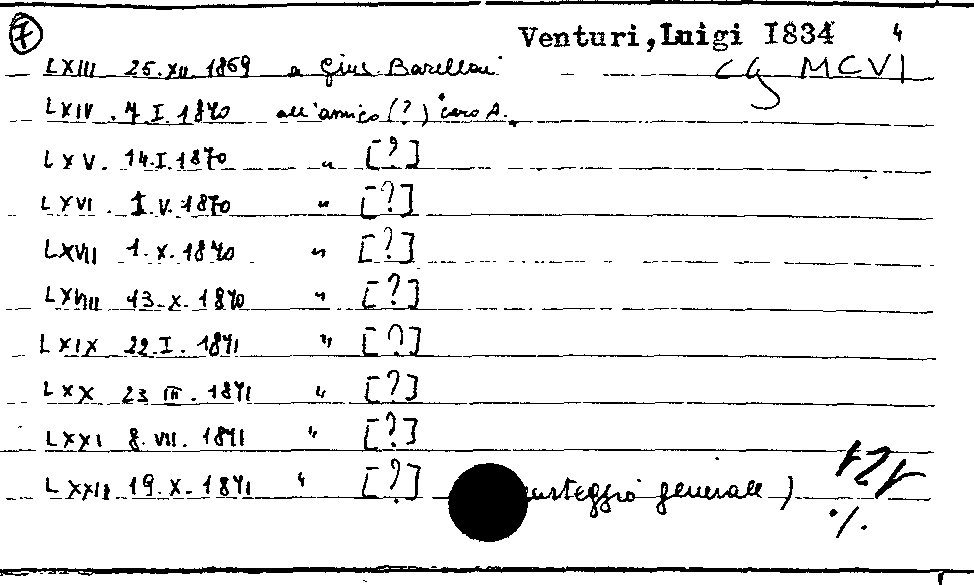 7 Venturi, Luigi 1834 4
CG MCVI
LXIII 25.XII.1869 a Gius Barelloni
LXIV. 7.I.1870 all'amico (?) "caro A.
LXV. 14.I.1870 " [?]
LXVI. 1.V.1870 " [?]
LXVII 1.X.1870 " [?]
LXVIII 13.X.1870 " [?]
LXIX 22.I.1871 " [?]
LXX 23 III.1871 " [?]
LXXI 8.VII.1871 " [?]
LXXII 19.X.1871 " [?] arteggio generale)
./.